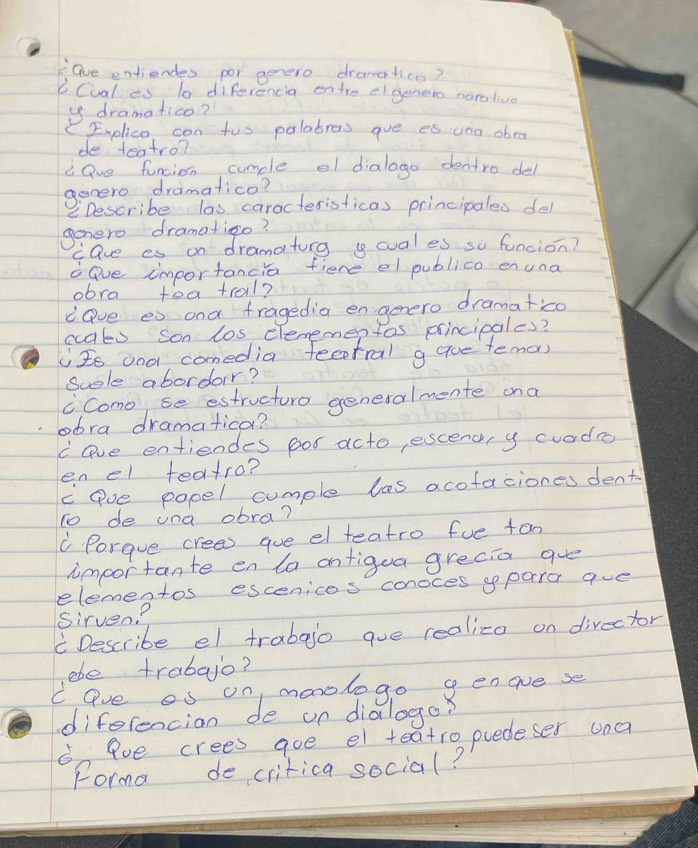 ¿Que entiendes por genero dramatico?
¿Cual es la diferencia entre el genero narativo
y dramatico?
¿Explica con tus palabras que es una obra
de teatro?
¿Que funcion cumple el dialogo dentro del
genero dramatico?
¿Describe las caracteristicas principales del
genero dramatico?
¿Que es un dramaturg y cual es su función?
¿Que importancia tiene el publico en una
obra tea tral?
¿Que es una tragedia en genero dramatico
cuales son los elemementos principales?
¿Es una comedia teeatral y que temas
suele abordar?
¿Como se estructura generalmente una
obra dramatica?
¿Que entiendes por acto, escena, y cuadro
en el teatro?
¿Que papel cumple las acotaciones dent
ro de una obra?
¿Porque crees que el teatro fue tan
importante en la antigua grecia que
elementos escenicos conoces y para que
sirven?
¿Describe el trabajo que realiza un director
ebe trabajo?
¿Que es un monologo y en que se
diferencian de un dialogo?
¿Que crees que el teatro puede ser una
Forma de critica social?